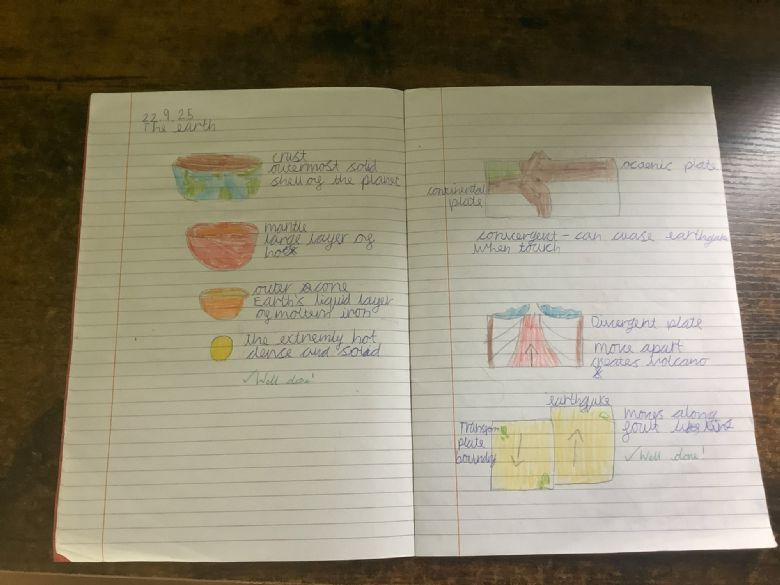 22.9.25
The earth
crust
outermost solid
shell og the planet
mantle
large layer og
outer score
Earth's liquid layer
og moltum iron
the extremly hot
dense and solid
✓Well done!
continental
plate
ocaenic plate
convergent - can cuase earthquake
when touch
Divergent plate
move apart
creates volcano
&
earthquake
Transform
plate
boundry
moves along
✓Well done!